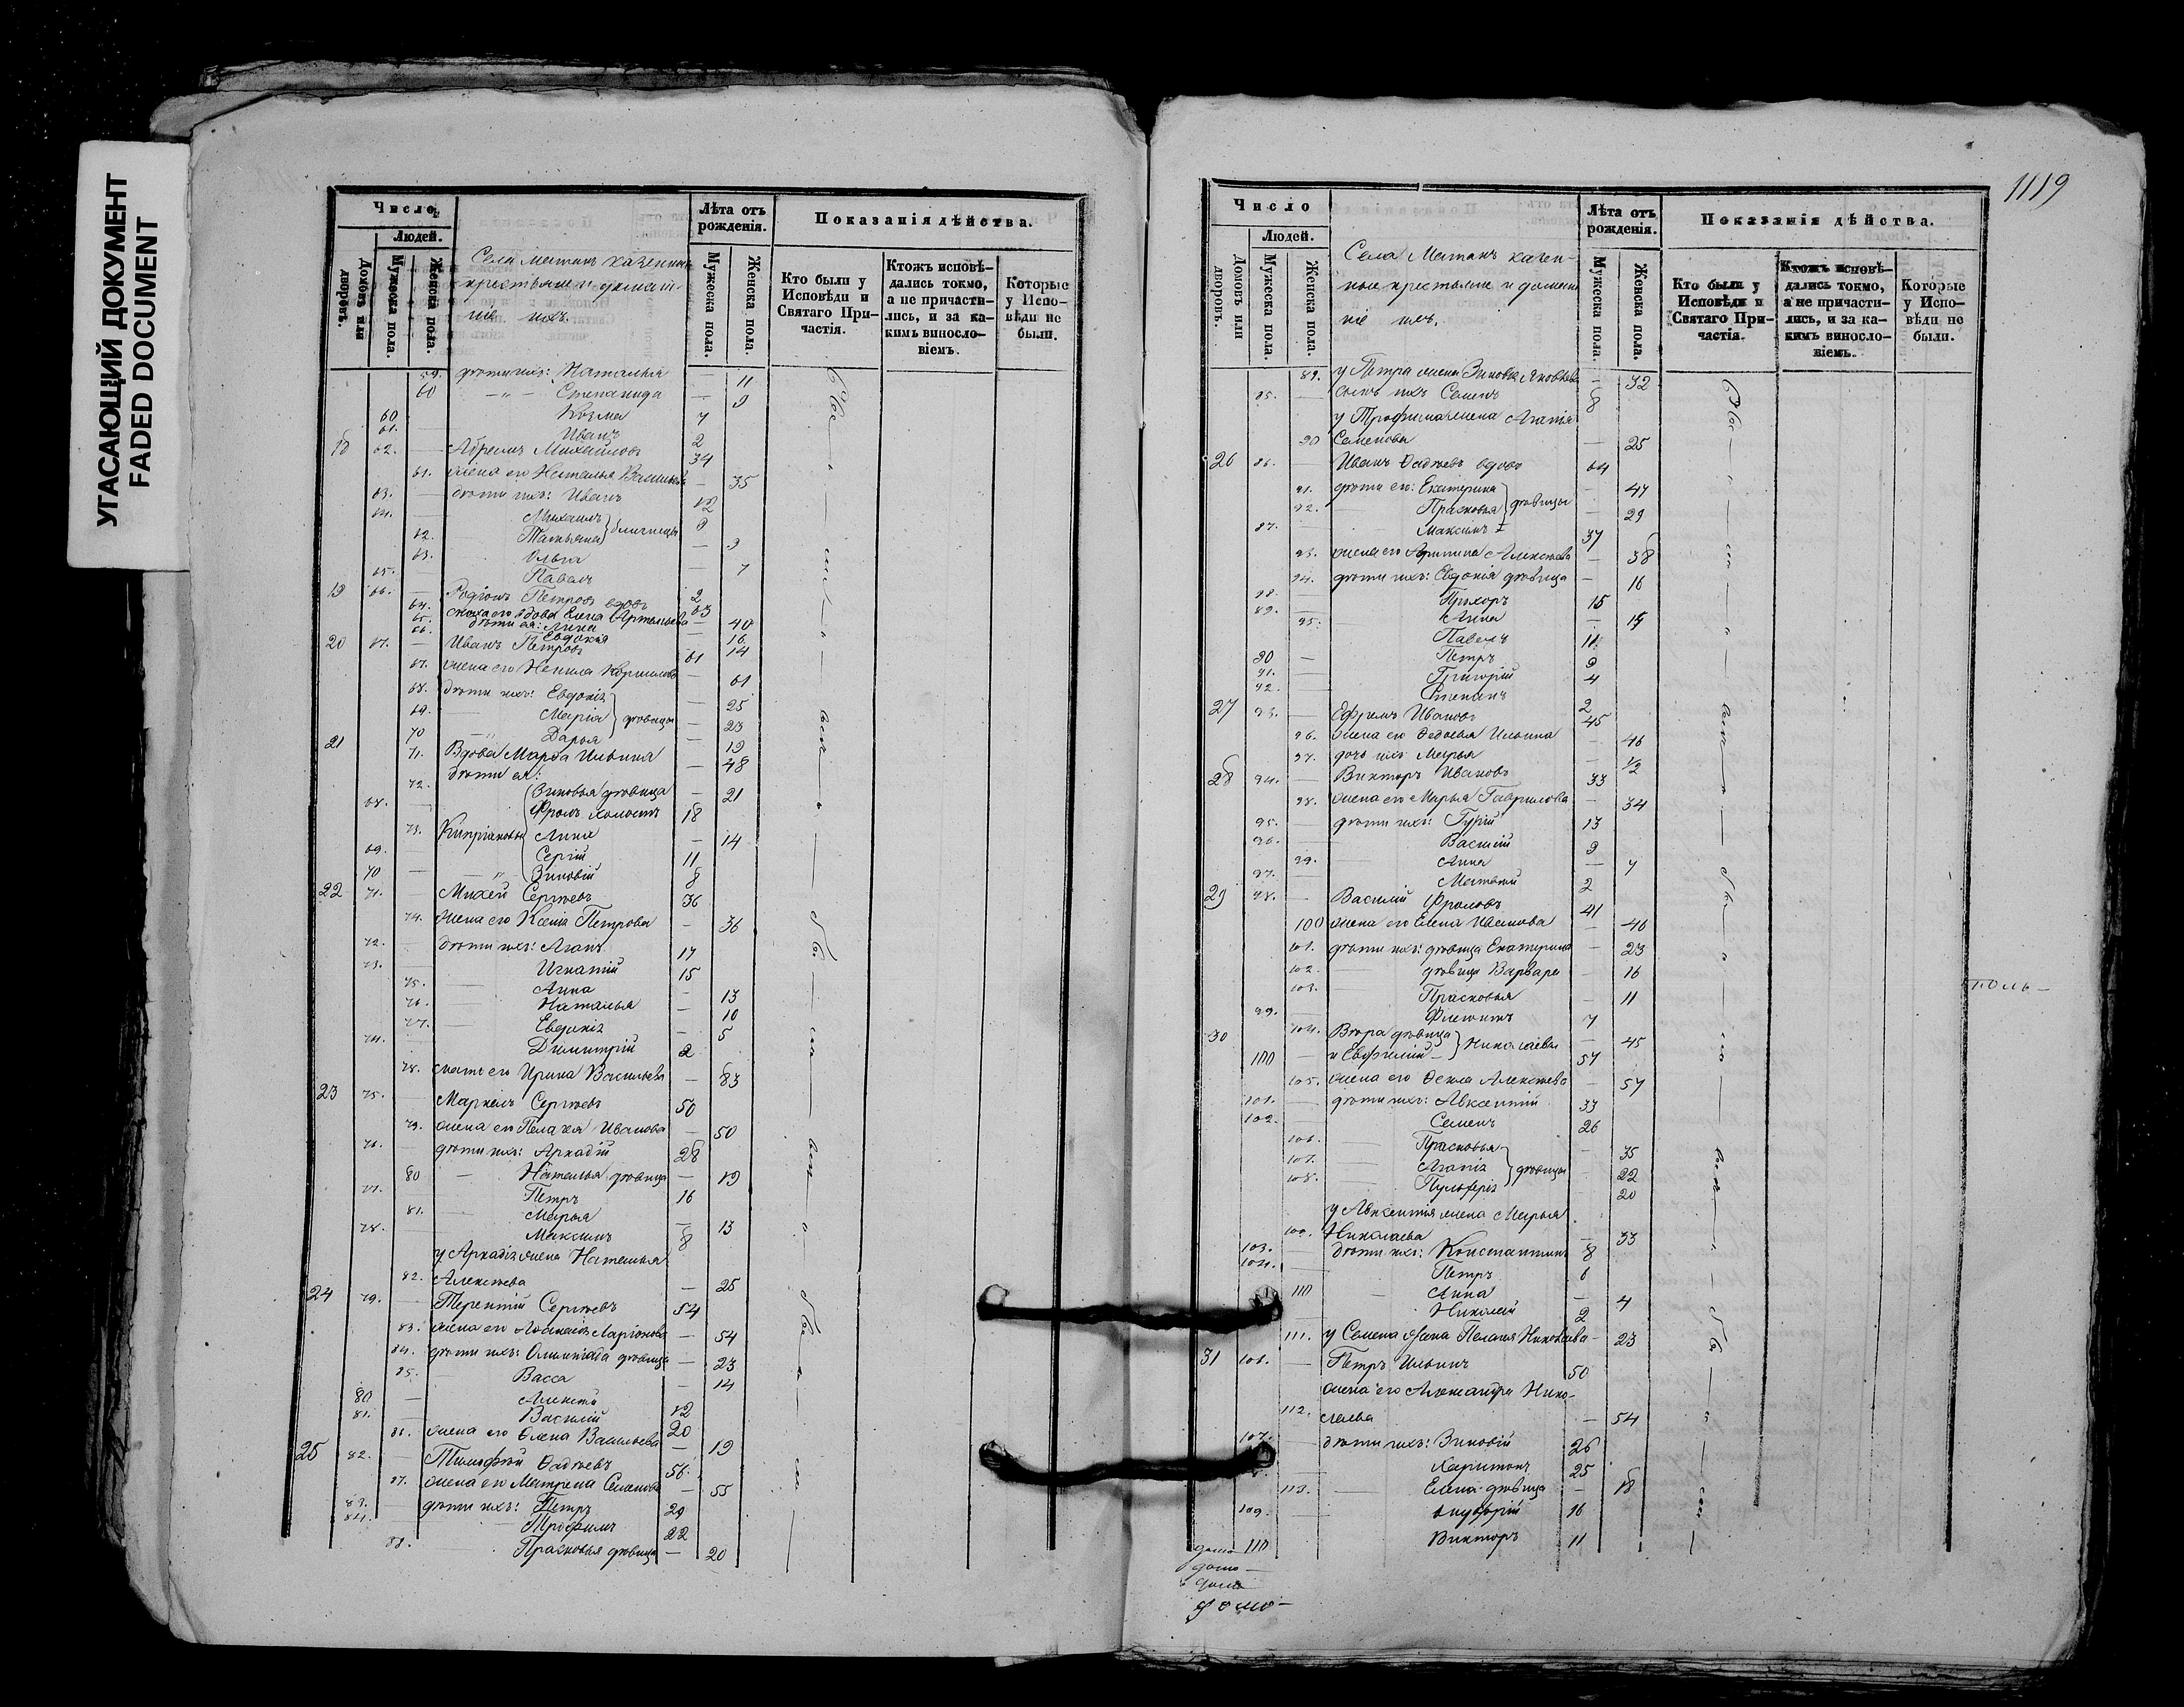 УГАСАЮЩИЙ ДОКУМЕНТ
FADED DOCUMENT
Число
Людей.
Домовъ или дворовъ.
Мужеска пола.
Женска пола.
Лѣта отъ рожденія.
Мужеска пола.
Женска пола.
Показанія дѣйства.
Кто были у Исповѣди и Святаго Причастія.
Ктожъ исповѣдались токмо, а не причастились, и за какимъ винословіемъ.
Которые у Исповѣди не были.
крестьяне и домаш-
ніе ихъ.
59. дѣти ихъ: Наталья — 11
60 — „ — Степанида — 9
60 Козма 7
61. — Иванъ 2
18 62. — Абрамъ Михайловъ 34
61. жена его Наталья Васильева — 35
63. — дѣти ихъ: Иванъ 12
64. — Михаилъ } близнецы 9
62. Татьяна — 9
63. Ольга — 7
65. — Павелъ 2
19 66. — Родіонъ Петровъ вдовъ 63
64. сноха его вдова Елена Артемьева — 40
65. дѣти ея: Анна — 16
66. Евдокія 14
20 67. — Иванъ Петровъ 61
67. жена его Ненила Кирилова — 61
68. дѣти ихъ: Евдокія — 25
69. Марія } дѣвицы — 23
70 — „ Дарья — 19
21 71. Вдова Марфа Ильина — 48
дѣти ея:
72. Зиновья дѣвица — 21
68. — Фролъ холостъ 18
73. Кипріановы Анна — 14
69. — Сергій 11
70 — „ Зиновій 8
22 71. — Михей Сергѣевъ 36
74. жена его Ксенія Петрова — 36
72. — дѣти ихъ: Агапъ 17
73. — Игнатій 15
75. — Анна — 13
76. — Наталья — 10
77. — Евдокія — 5
74. — Димитрій 2
78. мать его Ирина Васильева — 83
23 75. — Маркелъ Сергѣевъ 50
79. жена его Пелагея Иванова — 50
76. дѣти ихъ: Аркадій 28
80 — Наталья дѣвица — 19
77. Петръ 16
81. — Марья — 13
78. — Максимъ 8
у Аркадія жена Наталья
82. Алексѣева — 25
24 79. — Терентій Сергѣевъ 54
83. жена его Ларіонова — 54
84. дѣти ихъ: Олимпіада дѣвица — 23
85. — Васса — 14
80 — Алексѣй 12
81. — Василій 20
86. жена его Елена Васильева — 19
25 82. — Тимофей Фадѣевъ 56.
87. жена его Матрена Семенова — 55
83. — дѣти ихъ: Петръ 29
84. — Трофимъ 22
88. — Прасковья дѣвица — 20
1119
Число
Людей.
Домовъ или дворовъ.
Мужеска пола.
Женска пола.
Лѣта отъ рожденія.
Мужеска пола.
Женска пола.
Показанія дѣйства.
Кто были у Исповѣди и Святаго Причастія.
Ктожъ исповѣдались токмо, а не причастились, и за какимъ винословіемъ.
Которые у Исповѣди не были.
Села казен-
ные крестьяне и домаш
ніе ихъ.
89. у Петра жена Зиновья Яковлева — 32
85. — сынъ ихъ Семенъ 8
у Трофима жена Агапія
90 Семенова — 25
26 86. — Иванъ Фадѣевъ вдовъ 64
91. дѣти его: Екатерина — 47
92. — Прасковья } дѣвицы — 29
87. — Максимъ 37
93. жена его Алексѣева — 38
94. дѣти ихъ: Евдокія дѣвица — 16
88. — Прохоръ 15
95. Анна — 15
89. — Павелъ 11
90 — Петръ 9
91. — Григорій 4
92. — Степанъ 2
27 93. — Ефремъ Ивановъ 45
96. жена его Федосья Ильина — 46
97. дочь ихъ Марья — 1/2
28 94. — Викторъ Ивановъ 33
98. жена его Марья Гаврилова — 34
95. — дѣти ихъ: Гурій 13
96. — Василій 9
99. — Анна — 7
97. — Матвѣй 2
29 98. — Василій Фроловъ 41
100 жена его Елена Иванова — 46
101. дѣти ихъ: дѣвица Екатерина — 23
102. — дѣвица Варвара — 16
103. — Прасковья — 11
99. — 7
30 104. Вѣра дѣвица } Николаевы — 45
100 — и Евфимій 57
105. жена его Фекла Алексѣева — 57
101. — дѣти ихъ: Авксентій 33
102. Семенъ 26
106. — Прасковья — 35
107. — Агапія } дѣвицы — 22
108. — Пульхерія 20
у Авксентія жена Марья
109. Николаева — 33
103. — дѣти ихъ: Константинъ 8
104. — Петръ 6
110 — Анна — 4
— Николай 2
111. у Семена жена Пелагея Николаева — 23
31 106. — Петръ Ильинъ 50
жена его Александра Нико-
112. лаева — 54
107. — дѣти ихъ: Зиновій 26
— Харитонъ 25
113. — Елена дѣвица — 18
109. — 16
110 Викторъ 11